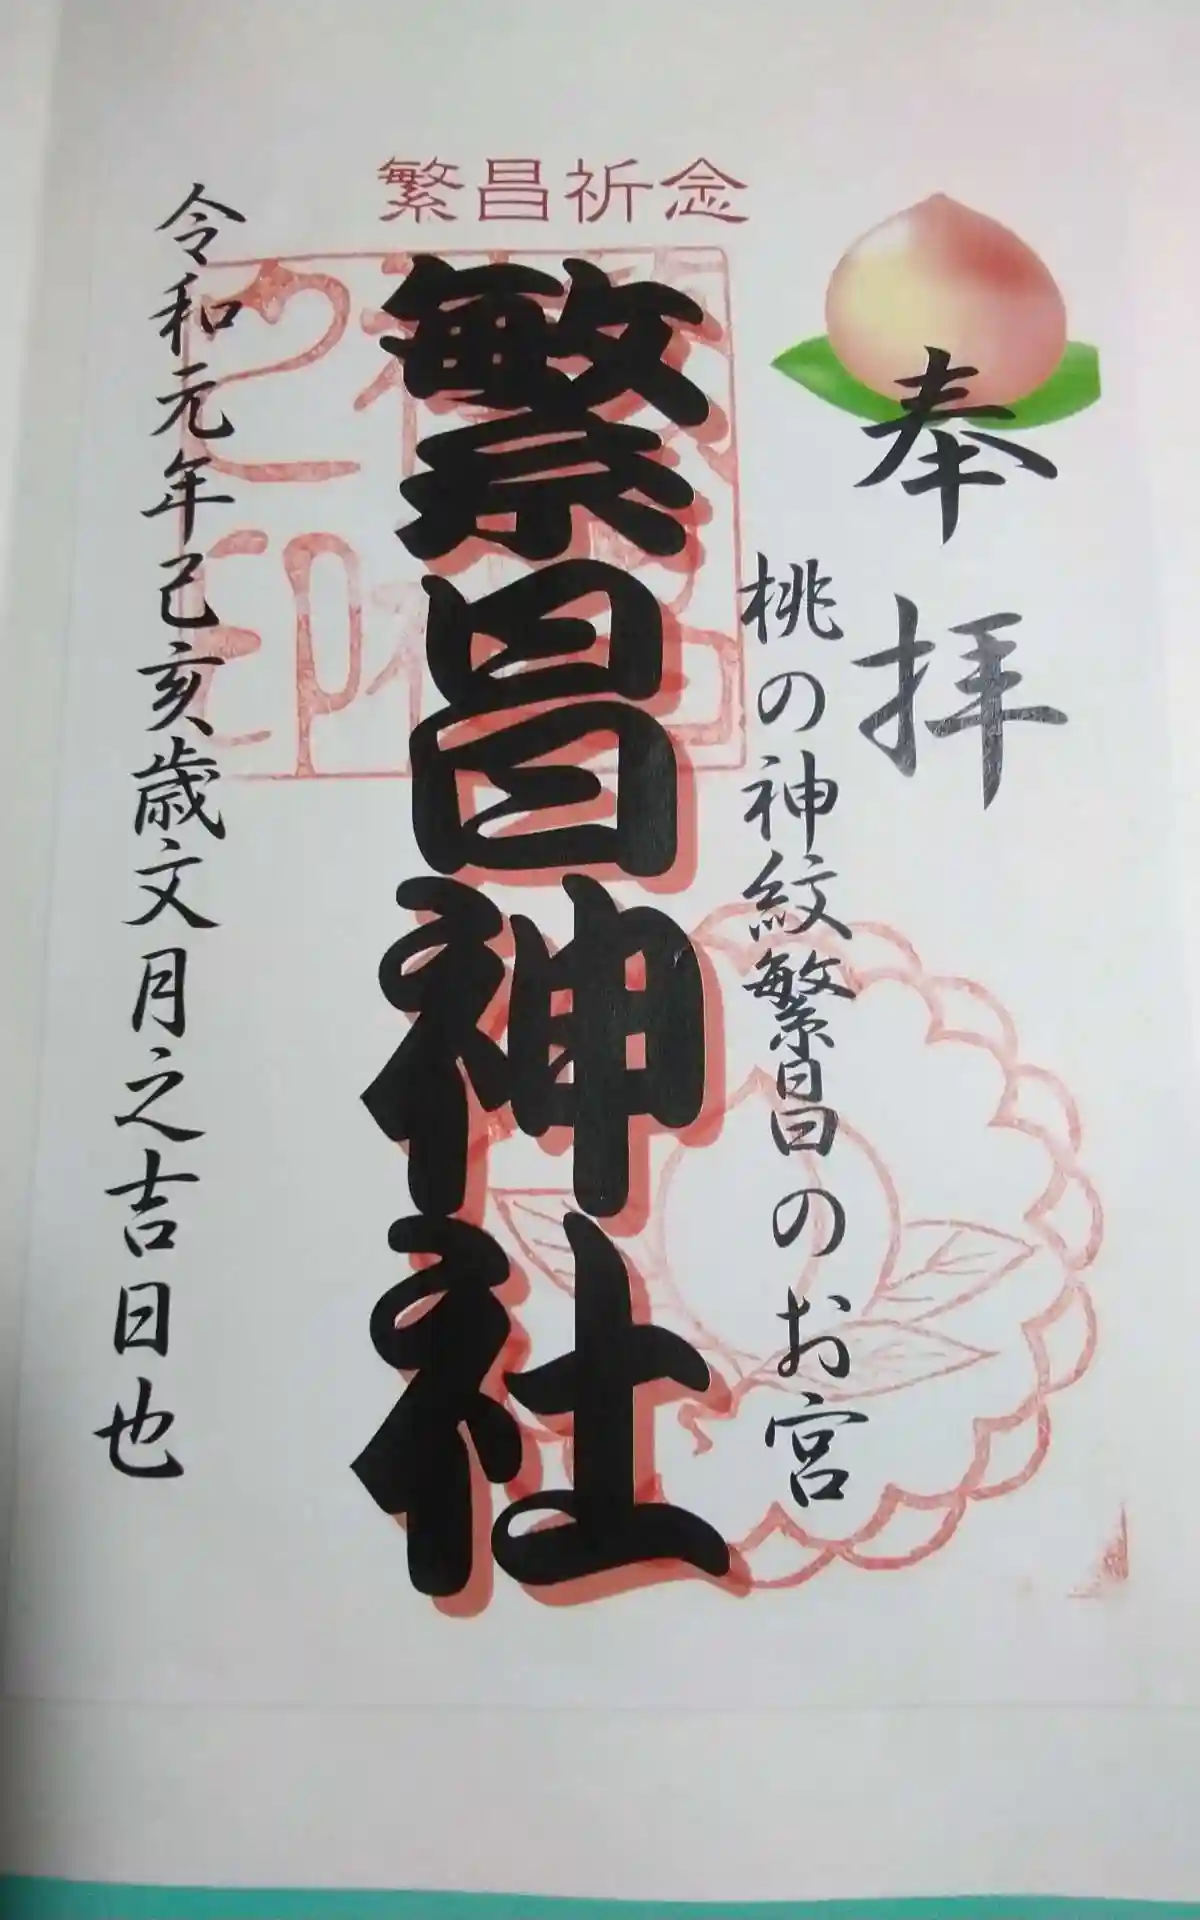 繁昌祈念
奉拝
桃の神紋繁昌のお宮
繁昌神社
令和元年己亥歳文月之吉日也